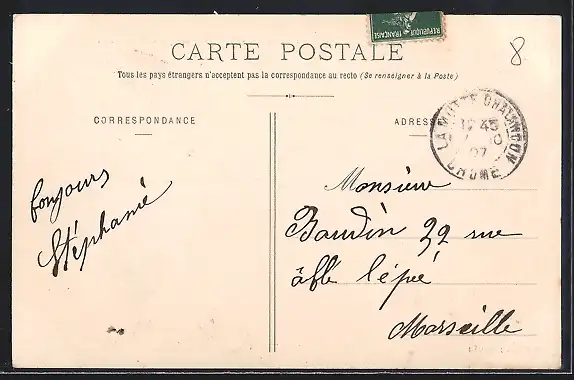 REPUBLIQUE FRANÇAISE
8
CARTE POSTALE
Tous les pays étrangers n'acceptent pas la correspondance au recto (Se renseigner à la Poste)
CORRESPONDANCE
ADRESSE
LA MOTTE CHALANCON
12 45
07
DROME
bonjours
Stéphanie
Monsieur
Baudin 39 rue
Marseille